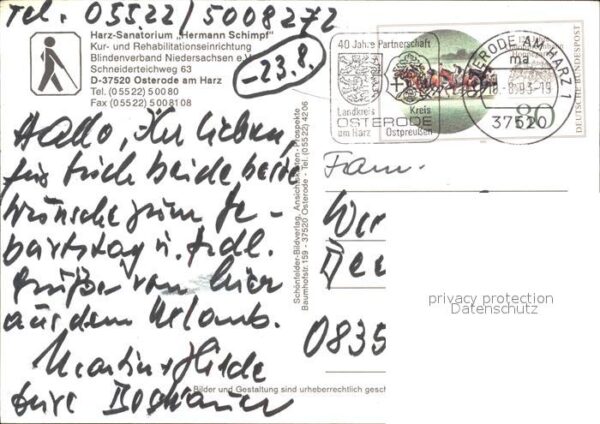 Tel. 05522/5008272
Harz-Sanatorium „Hermann Schimpf"
Kur- und Rehabilitationseinrichtung
Blindenverband Niedersachsen e.V.
Schneiderteichweg 63
D-37520 Osterode am Harz
Tel. (05522) 50080
Fax (05522) 5008108
-23.8.
Hallo, Ihr Lieben,
für Euch beide beste
Wünsche zum Ge-
burtstag u. frdl.
Grüße von hier
aus dem Urlaub.
Eure
40 Jahre Partnerschaft
Landkreis Kreis
OSTERODE
am Harz Ostpreußen
OSTERODE AM HARZ 1
ma
18.-8.93-19
37520
80
DEUTSCHE BUNDESPOST
Schönfelder-Bildverlag, Ansichtskarten - Prospekte
Baumhofstr. 159 - 37520 Osterode - Tel. (05522) 4206
Fam.
0835
privacy protection
Datenschutz
Bilder und Gestaltung sind urheberrechtlich gesch